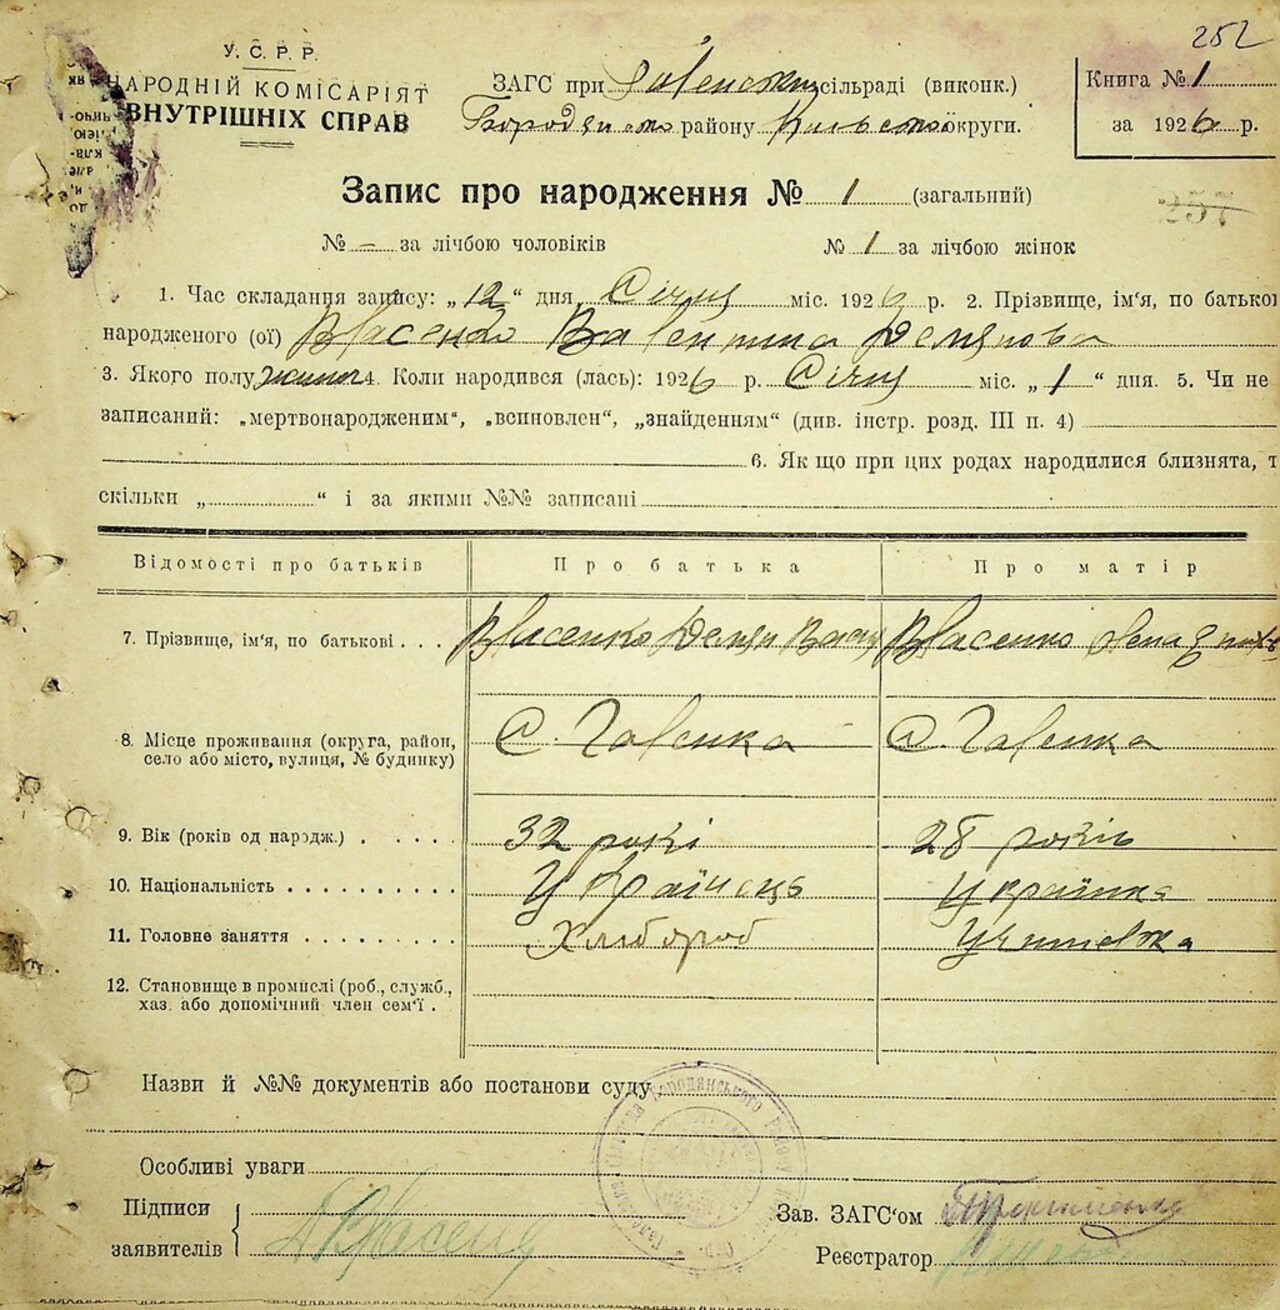 252
У. С. Р. Р.
НАРОДНІЙ КОМІСАРІЯТ
ВНУТРІШНІХ СПРАВ
ЗАГС при сільраді (виконк.)
району округи.
Книга № 1
за 1926 р.
257
Запис про народження № 1 (загальний)
№ – за лічбою чоловіків № 1 за лічбою жінок
1. Час складання запису: „12“ дня Січня міс. 1926 р. 2. Прізвище, ім'я, по батькові
народженого (ої) Власенко Валентина Демянова
3. Якого полу жіноч 4. Коли народився (лась): 1926 р. Січня міс. „1“ дня. 5. Чи не
записаний: „мертвонародженим“, „всиновлен“, „знайденням“ (див. інстр. розд. III п. 4)
6. Як що при цих родах народилися близнята, т
скільки „ “ і за якими №№ записані
Відомості про батьків Про батька Про матір
7. Прізвище, ім'я, по батькові . . . Власенко Демян Власенко Олена
8. Місце проживання (округа, район, С. Гавенка С. Гавенка
село або місто, вулиця, № будинку)
9. Вік (років од народж.) . . . . . 32 рокі 28 років
10. Національність . . . . . . . . . . Українець Українка
11. Головне заняття . . . . . . . . . Хлібороб
12. Становище в промислі (роб., служб.,
хаз. або допомічний член сем'ї .
Назви й №№ документів або постанови суду
Бородянського району
Особливі уваги
Підписи
заявителів
Зав. ЗАГС'ом
Реєстратор